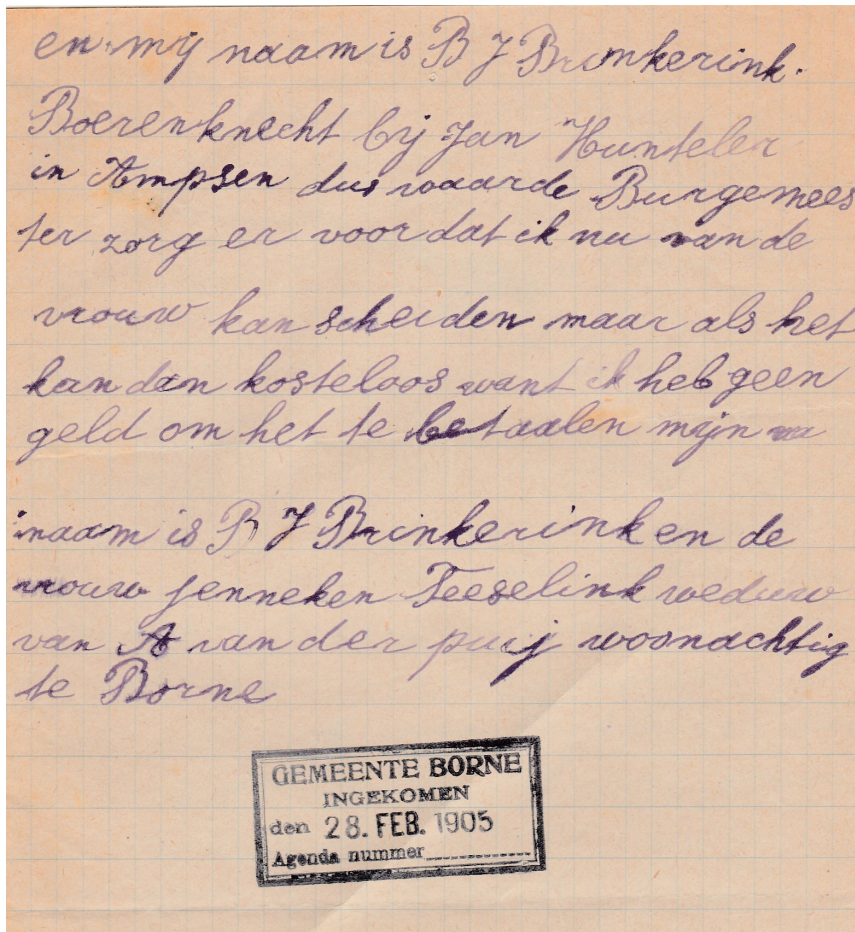 en mij naam is B J Brinkerink.
Boerenknecht bij Jan Hunteler
in Ampsen dus waarde Burgemees
ter zorg er voor dat ik nu van de
vrouw kan scheiden maar als het
kan dan kosteloos want ik heb geen
geld om het te betaalen mijn
naam is B J Brinkerink en de
vrouw Jenneken Teeselink weduw
van A van der puij woonachtig
te Borne
GEMEENTE BORNE
INGEKOMEN
den 28. FEB. 1905
Agenda nummer